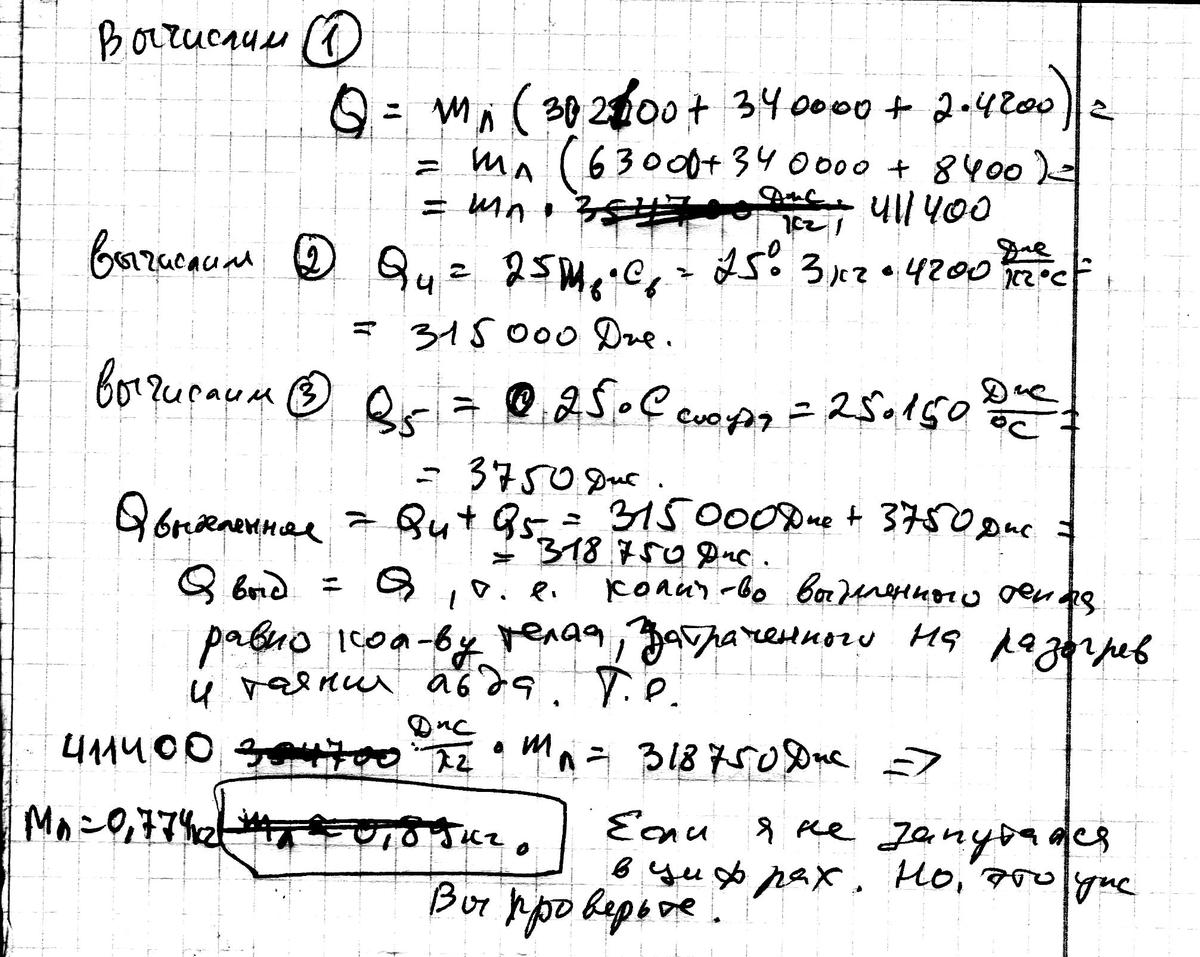 Вычислим ①
Q = mл (30·2100 + 340000 + 2·4200) =
= mл (63000 + 340000 + 8400) =
= mл · 354700 Дж/кг, 411400
Вычислим ② Q4 = 25mв·Cв = 25°·3кг·4200 Дж/кг·°С =
= 315000 Дж.
Вычислим ③ Q5 = 25·Cсосуда = 25·150 Дж/°С =
= 3750 Дж.
Qвыделенное = Q4 + Q5 = 315000Дж + 3750Дж =
= 318750Дж.
Qвыд = Q, т.е. колич-во выделенного тепла
равно кол-ву тепла, затраченного на разогрев
и таяния льда. Т.е.
411400 354700 Дж/кг · mл = 318750Дж =>
Mл = 0,774кг mл ≈ 0,89кг. Если я не запутался
в цифрах. Но, это уж
Вы проверьте.